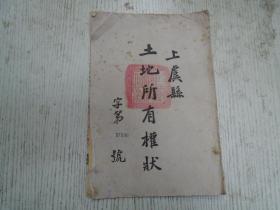 上虞縣
土地所有權狀
字第 號